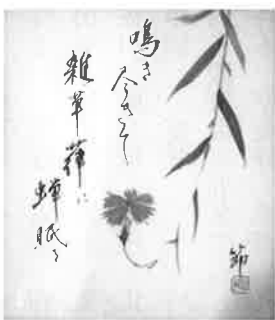 鳴き尽きて
雑草葬に
蝉眠る
節